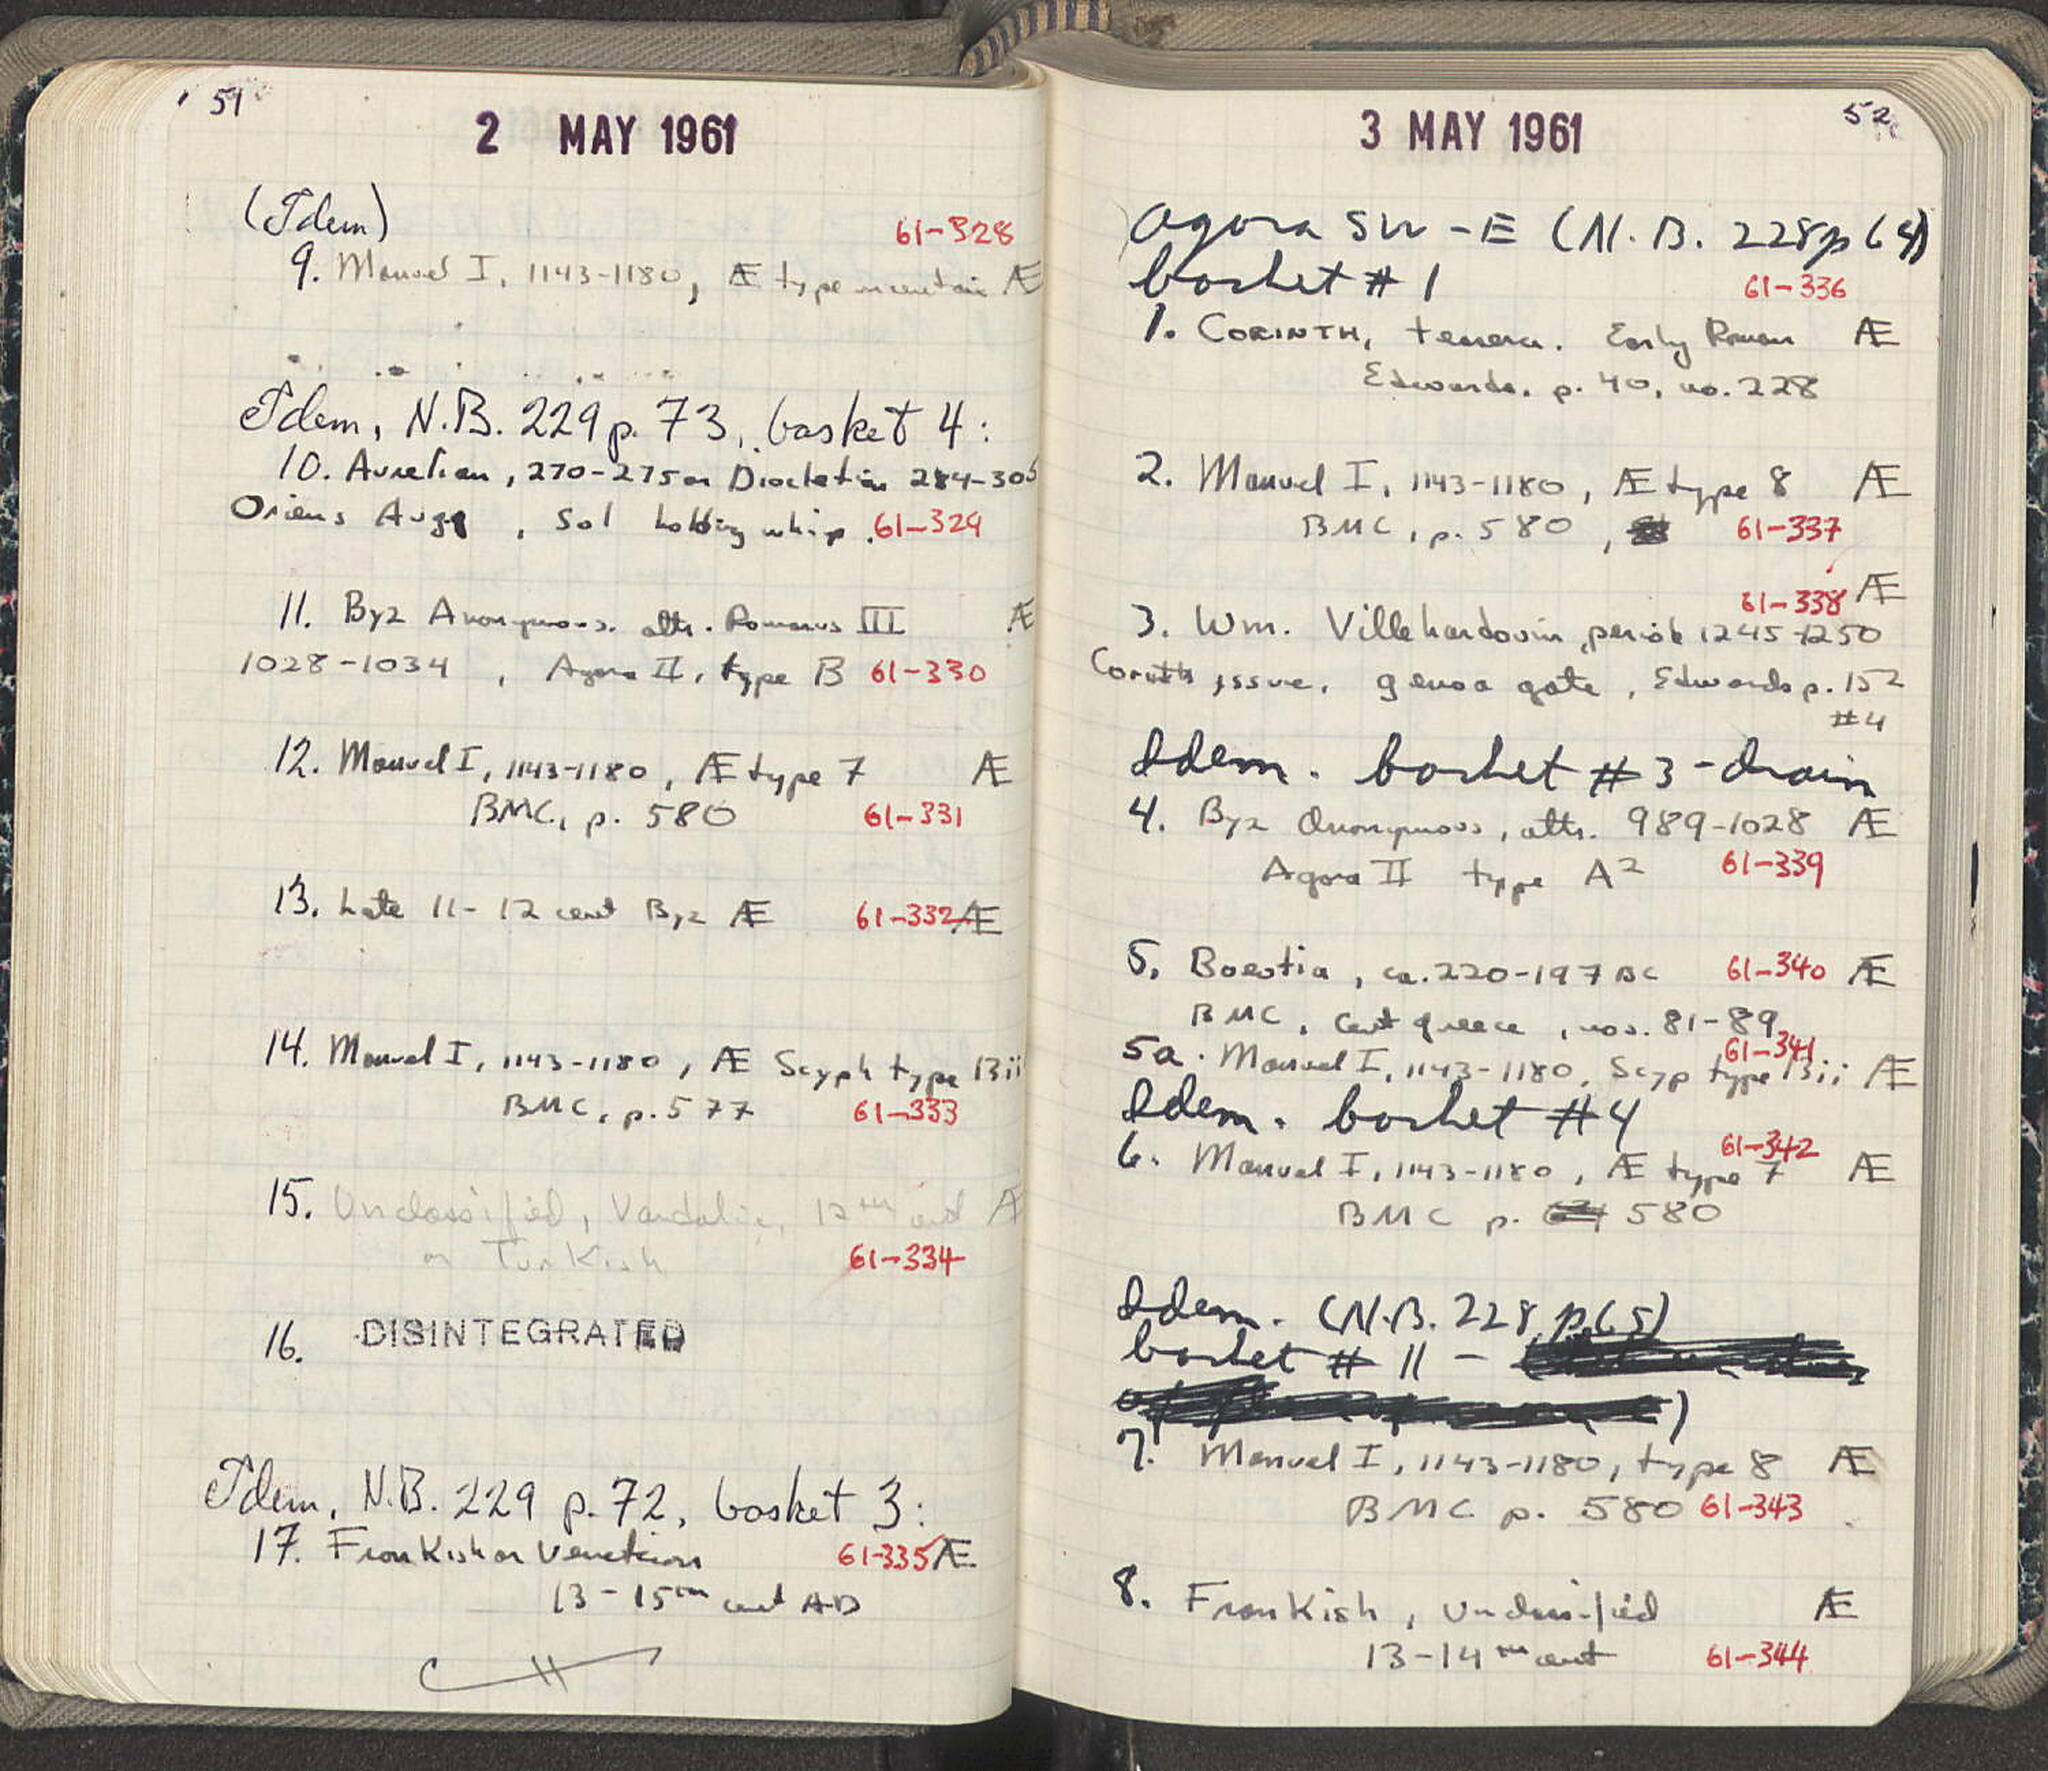 51
2 MAY 1961
(Idem)
61-328
9. Manuel I, 1143-1180, Æ type uncertain Æ
Idem, N.B. 229 p. 73, basket 4:
10. Aurelian, 270-275 or Diocletian 284-305
Oriens Augg, Sol holding whip. 61-329
11. Byz Anonymous. attr. Romanus III Æ
1028-1034, Agora II, type B 61-330
12. Manuel I, 1143-1180, Æ type 7 Æ
BMC, p. 580 61-331
13. Late 11-12 cent Byz Æ 61-332 Æ
14. Manuel I, 1143-1180, Æ Scyph type 13ii
BMC, p. 577 61-333
15. Unclassified, Vandalic, 12th cent Æ
or Turkish 61-334
16. DISINTEGRATED
Idem, N.B. 229 p. 72, basket 3:
17. Frankish or Venetian 61-335 Æ
13-15th cent AD
52
3 MAY 1961
Agora SW-E (N.B. 228 p 64)
basket # 1 61-336
1. CORINTH, tessera. Early Roman Æ
Edwards, p. 40, no. 228
2. Manuel I, 1143-1180, Æ type 8 Æ
BMC, p. 580, 61-337
61-338 Æ
3. Wm. Villehardouin, period 1245-1250
Corinth issue, genoa gate, Edwards p. 152
#4
Idem. basket #3 - drain
4. Byz Anonymous, attr. 989-1028 Æ
Agora II type A2 61-339
5. Boeotia, ca. 220-197 BC 61-340 Æ
BMC, Cent greece, nos. 81-89
61-341
5a. Manuel I, 1143-1180, Scyp type 13ii Æ
Idem. basket #4
61-342
6. Manuel I, 1143-1180, Æ type 7 Æ
BMC p. 580
Idem. (N.B. 228 p. 65)
basket # 11 -
)
7. Manuel I, 1143-1180, type 8 Æ
BMC p. 580 61-343
8. Frankish, unclassified Æ
13-14th cent 61-344